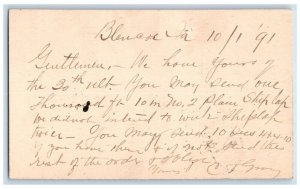 Blencoe Ia 10/1 '91
Gentlemen, - We have yours of
the 30th ult. You may send one
thousand ft 10 in No, 2 Plain Ship lap
we did not intend to write shiplap
twice - You may send 10
if you have them if not send the
rest of the order &
Yours